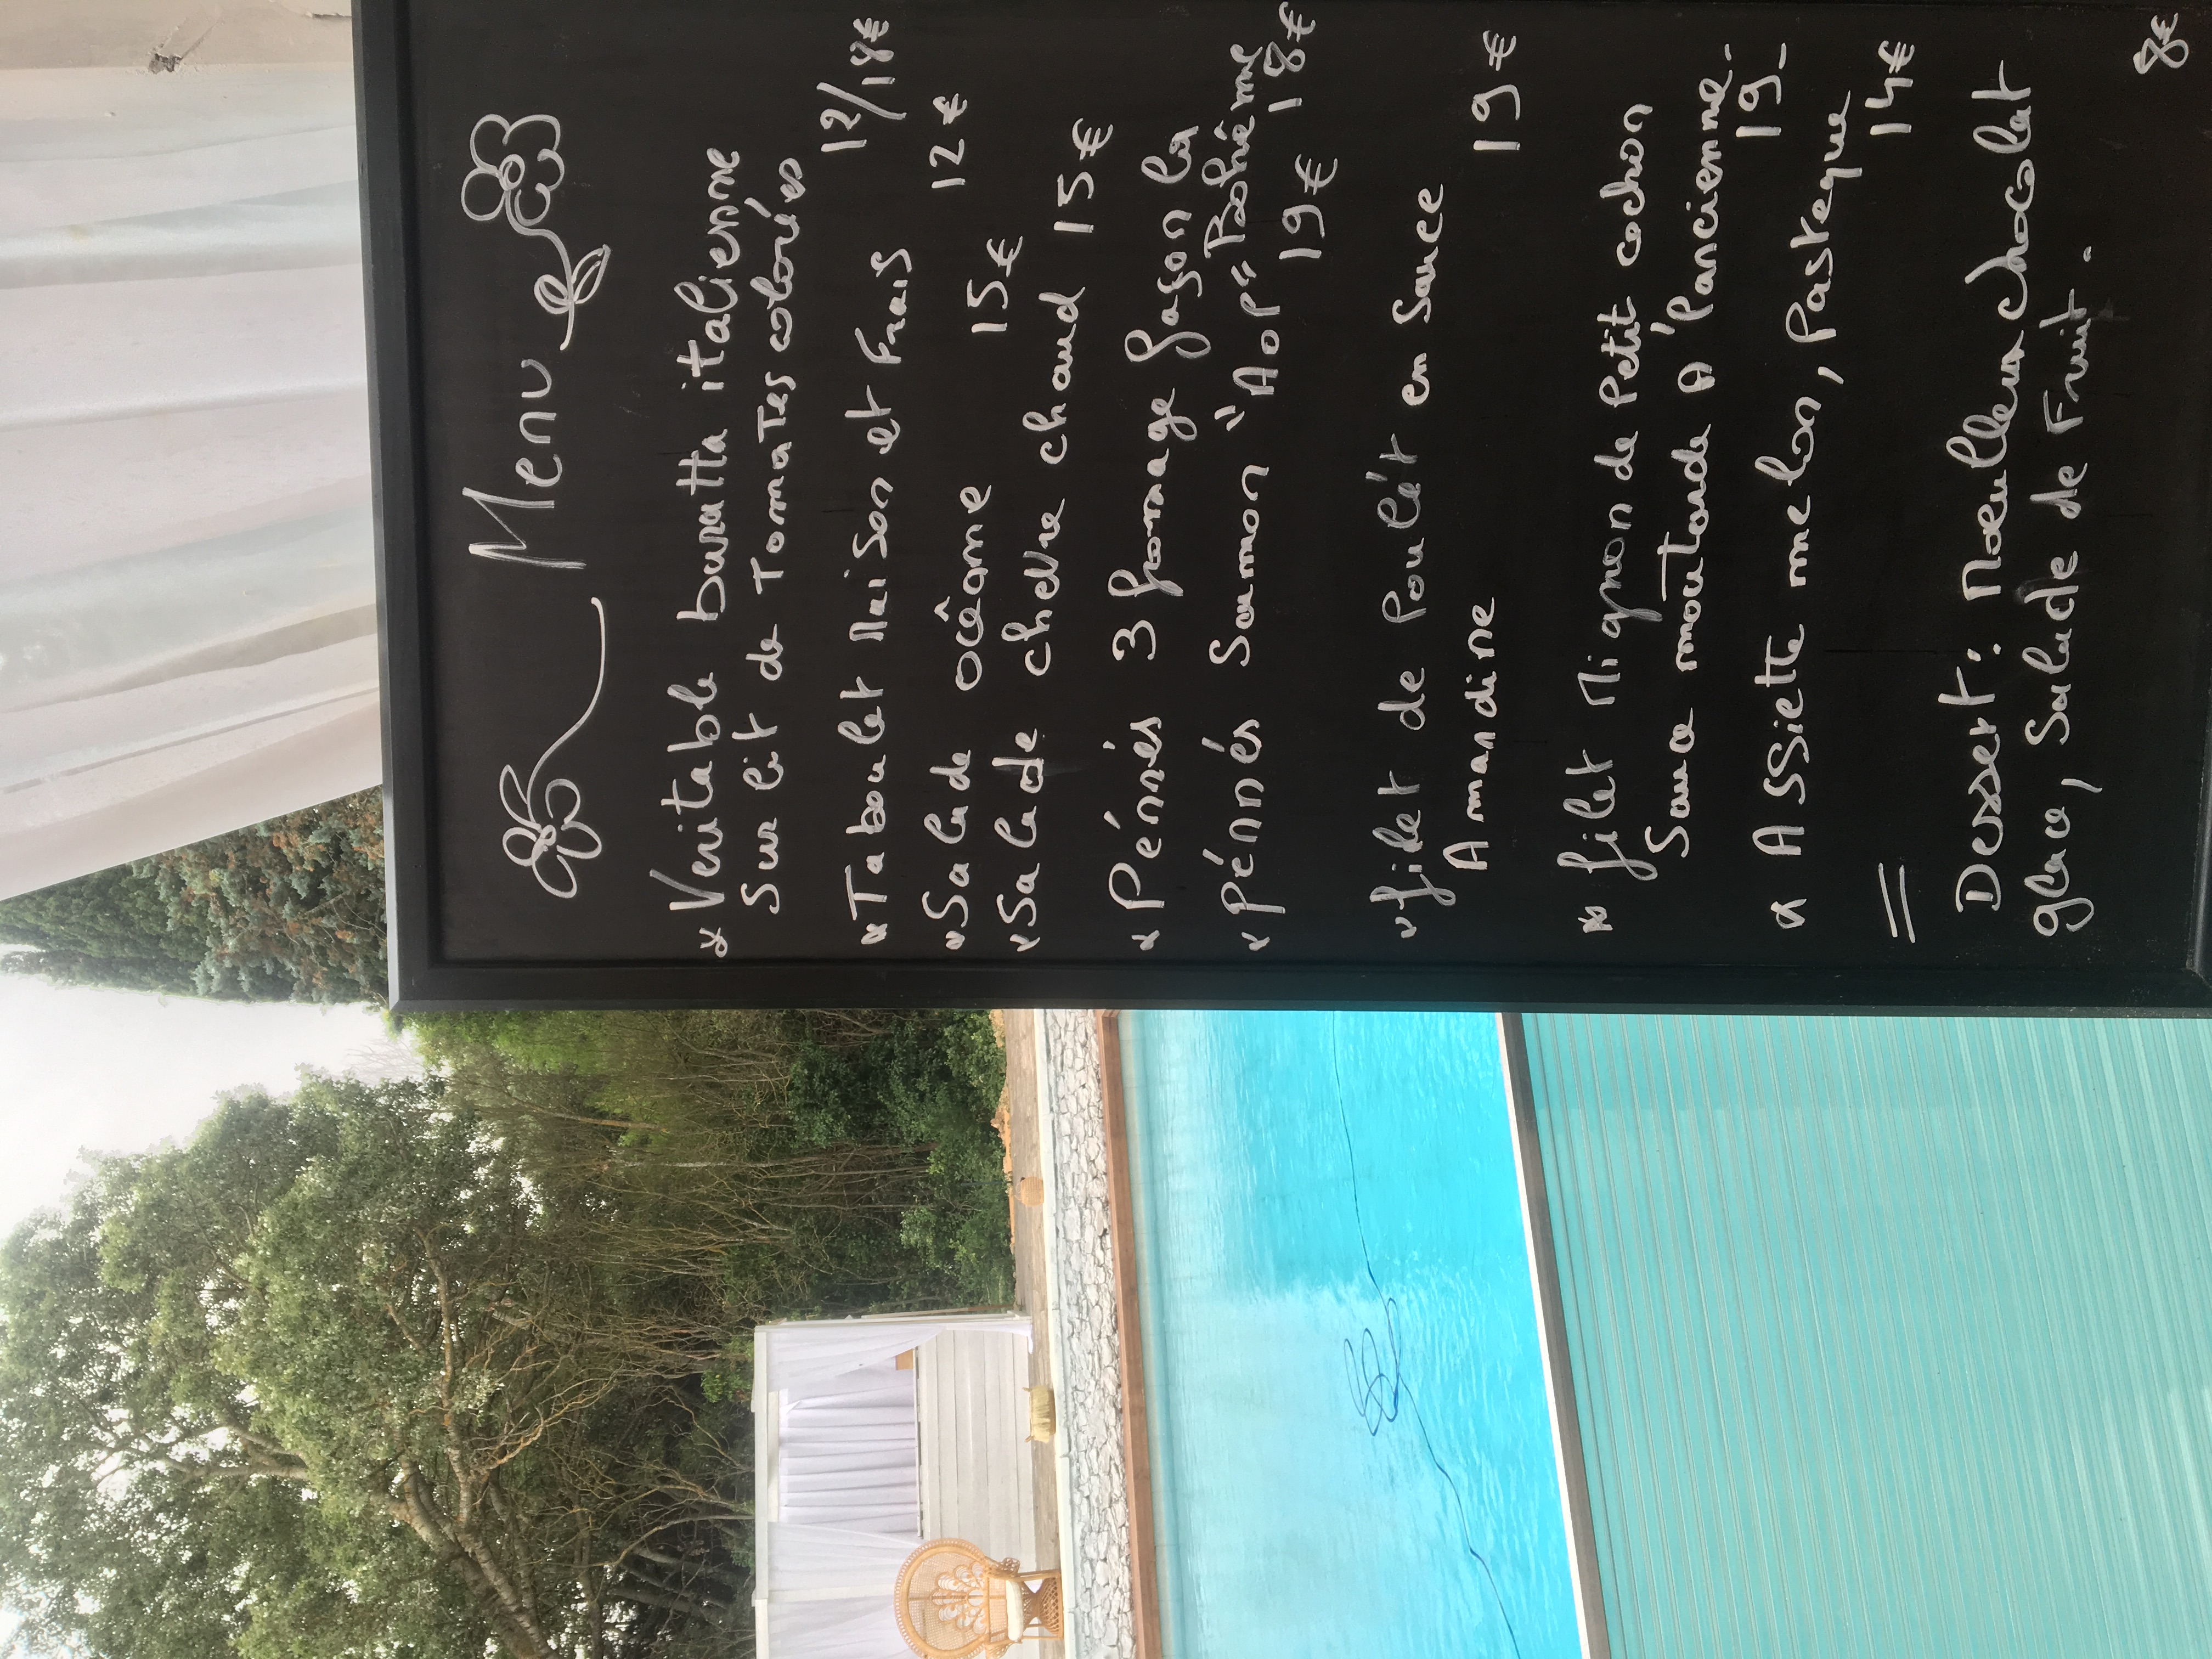 Menu
* Veritable buratta italienne
sur lit de Tomates colorées
12/18€
* Taboulet Maison et Frais
12€
* Salade océane 15€
* Salade chèvre chaud 15€
* Pénnés 3 fromage façon la
Bohéme 18€
* pénnés Saumon "AOP" 19€
* filet de Poulét en Sauce
Amandine 19€
* filet Mignon de Petit cochon
Sauce moutarde A l'ancienne.
19_
* ASSiette melon, Pasteque
14€
Dessert: Moelleux chocolat
glace, Salade de Fruit.
8€